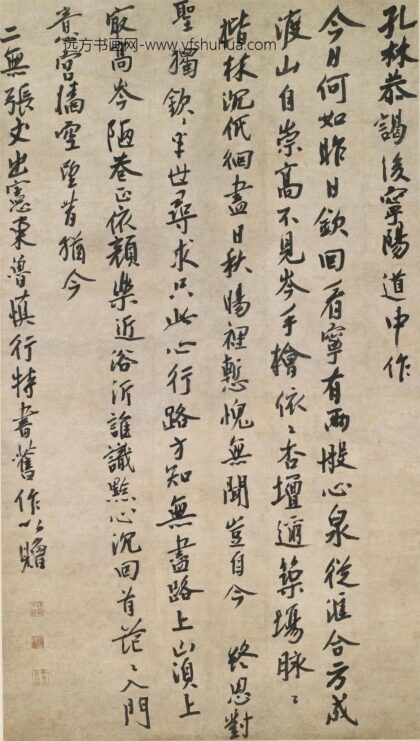 远方书画网-www.yfshuhua.com
孔林恭謁後寧陽道中作
今日何如昨日欽回看寧有兩般心泉從滙合方成
渡山自崇高不見岑手檜依〻杏壇邇築場脉〻
楷林沉低徊盡日秋陽裡慙愧無聞豈自今 終思對
聖獨欽〻半世尋求只此心行路方知無盡路上山須上
最高岑陋巷正依顏樂近浴沂誰識點心沉回首茫〻入門
宮墻空望昔猶今
二無張丈出憲東魯慎行特書舊作以贈